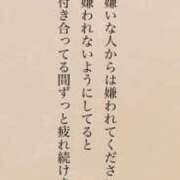 嫌いな人からは嫌われてくださ
嫌われないようにしてると
付き合ってる間ずっと疲れ続け